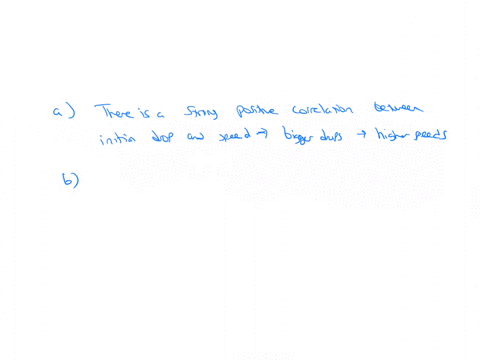 a) There is a strong positive correlation between
initial drop and speed → bigger drops → higher speeds
b)